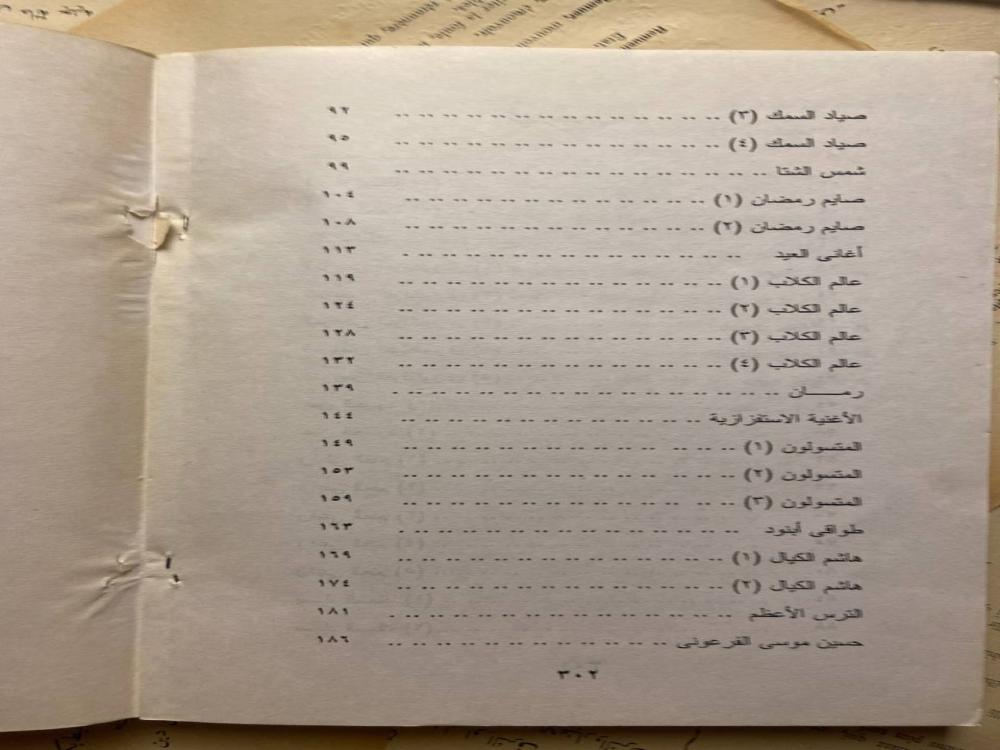 صياد السمك (٣) .. .. .. .. .. .. .. .. .. .. .. .. .. .. ٩٢
صياد السمك (٤) .. .. .. .. .. .. .. .. .. .. .. .. .. .. ٩٥
شمس الشتا .. .. .. .. .. .. .. .. .. .. .. .. .. .. .. .. ٩٩
صايم رمضان (١) .. .. .. .. .. .. .. .. .. .. .. .. .. ١٠٤
صايم رمضان (٢) .. .. .. .. .. .. .. .. .. .. .. .. .. ١٠٨
أغانى العيد .. .. .. .. .. .. .. .. .. .. .. .. .. .. . ١١٣
عالم الكلاب (١) .. .. .. .. .. .. .. .. .. .. .. .. .. .. ١١٩
عالم الكلاب (٢) .. .. .. .. .. .. .. .. .. .. .. .. .. .. ١٢٤
عالم الكلاب (٣) .. .. .. .. .. .. .. .. .. .. .. .. .. .. ١٢٨
عالم الكلاب (٤) .. .. .. .. .. .. .. .. .. .. .. .. .. .. ١٣٢
رمـــــان .. .. .. .. .. .. .. .. .. .. .. .. .. .. .. .. . ١٣٩
الأغنية الاستفزازية .. .. .. .. .. .. .. .. .. .. .. .. .. ١٤٤
المتسولون (١) .. .. .. .. .. .. .. .. .. .. .. .. .. .. ١٤٩
المتسولون (٢) .. .. .. .. .. .. .. .. .. .. .. .. .. .. ١٥٣
المتسولون (٣) .. .. .. .. .. .. .. .. .. .. .. .. .. .. ١٥٩
طواقى أبنود .. .. .. .. .. .. .. .. .. .. .. .. .. .. ١٦٣
هاشم الكيال (١) .. .. .. .. .. .. .. .. .. .. .. .. .. .. ١٦٩
هاشم الكيال (٢) .. .. .. .. .. .. .. .. .. .. .. .. .. .. ١٧٤
الترس الأعظم .. .. .. .. .. .. .. .. .. .. .. .. .. .. . ١٨١
حسين موسى الفرعونى .. .. .. .. .. .. .. .. .. .. .. .. ١٨٦
٣٠٢